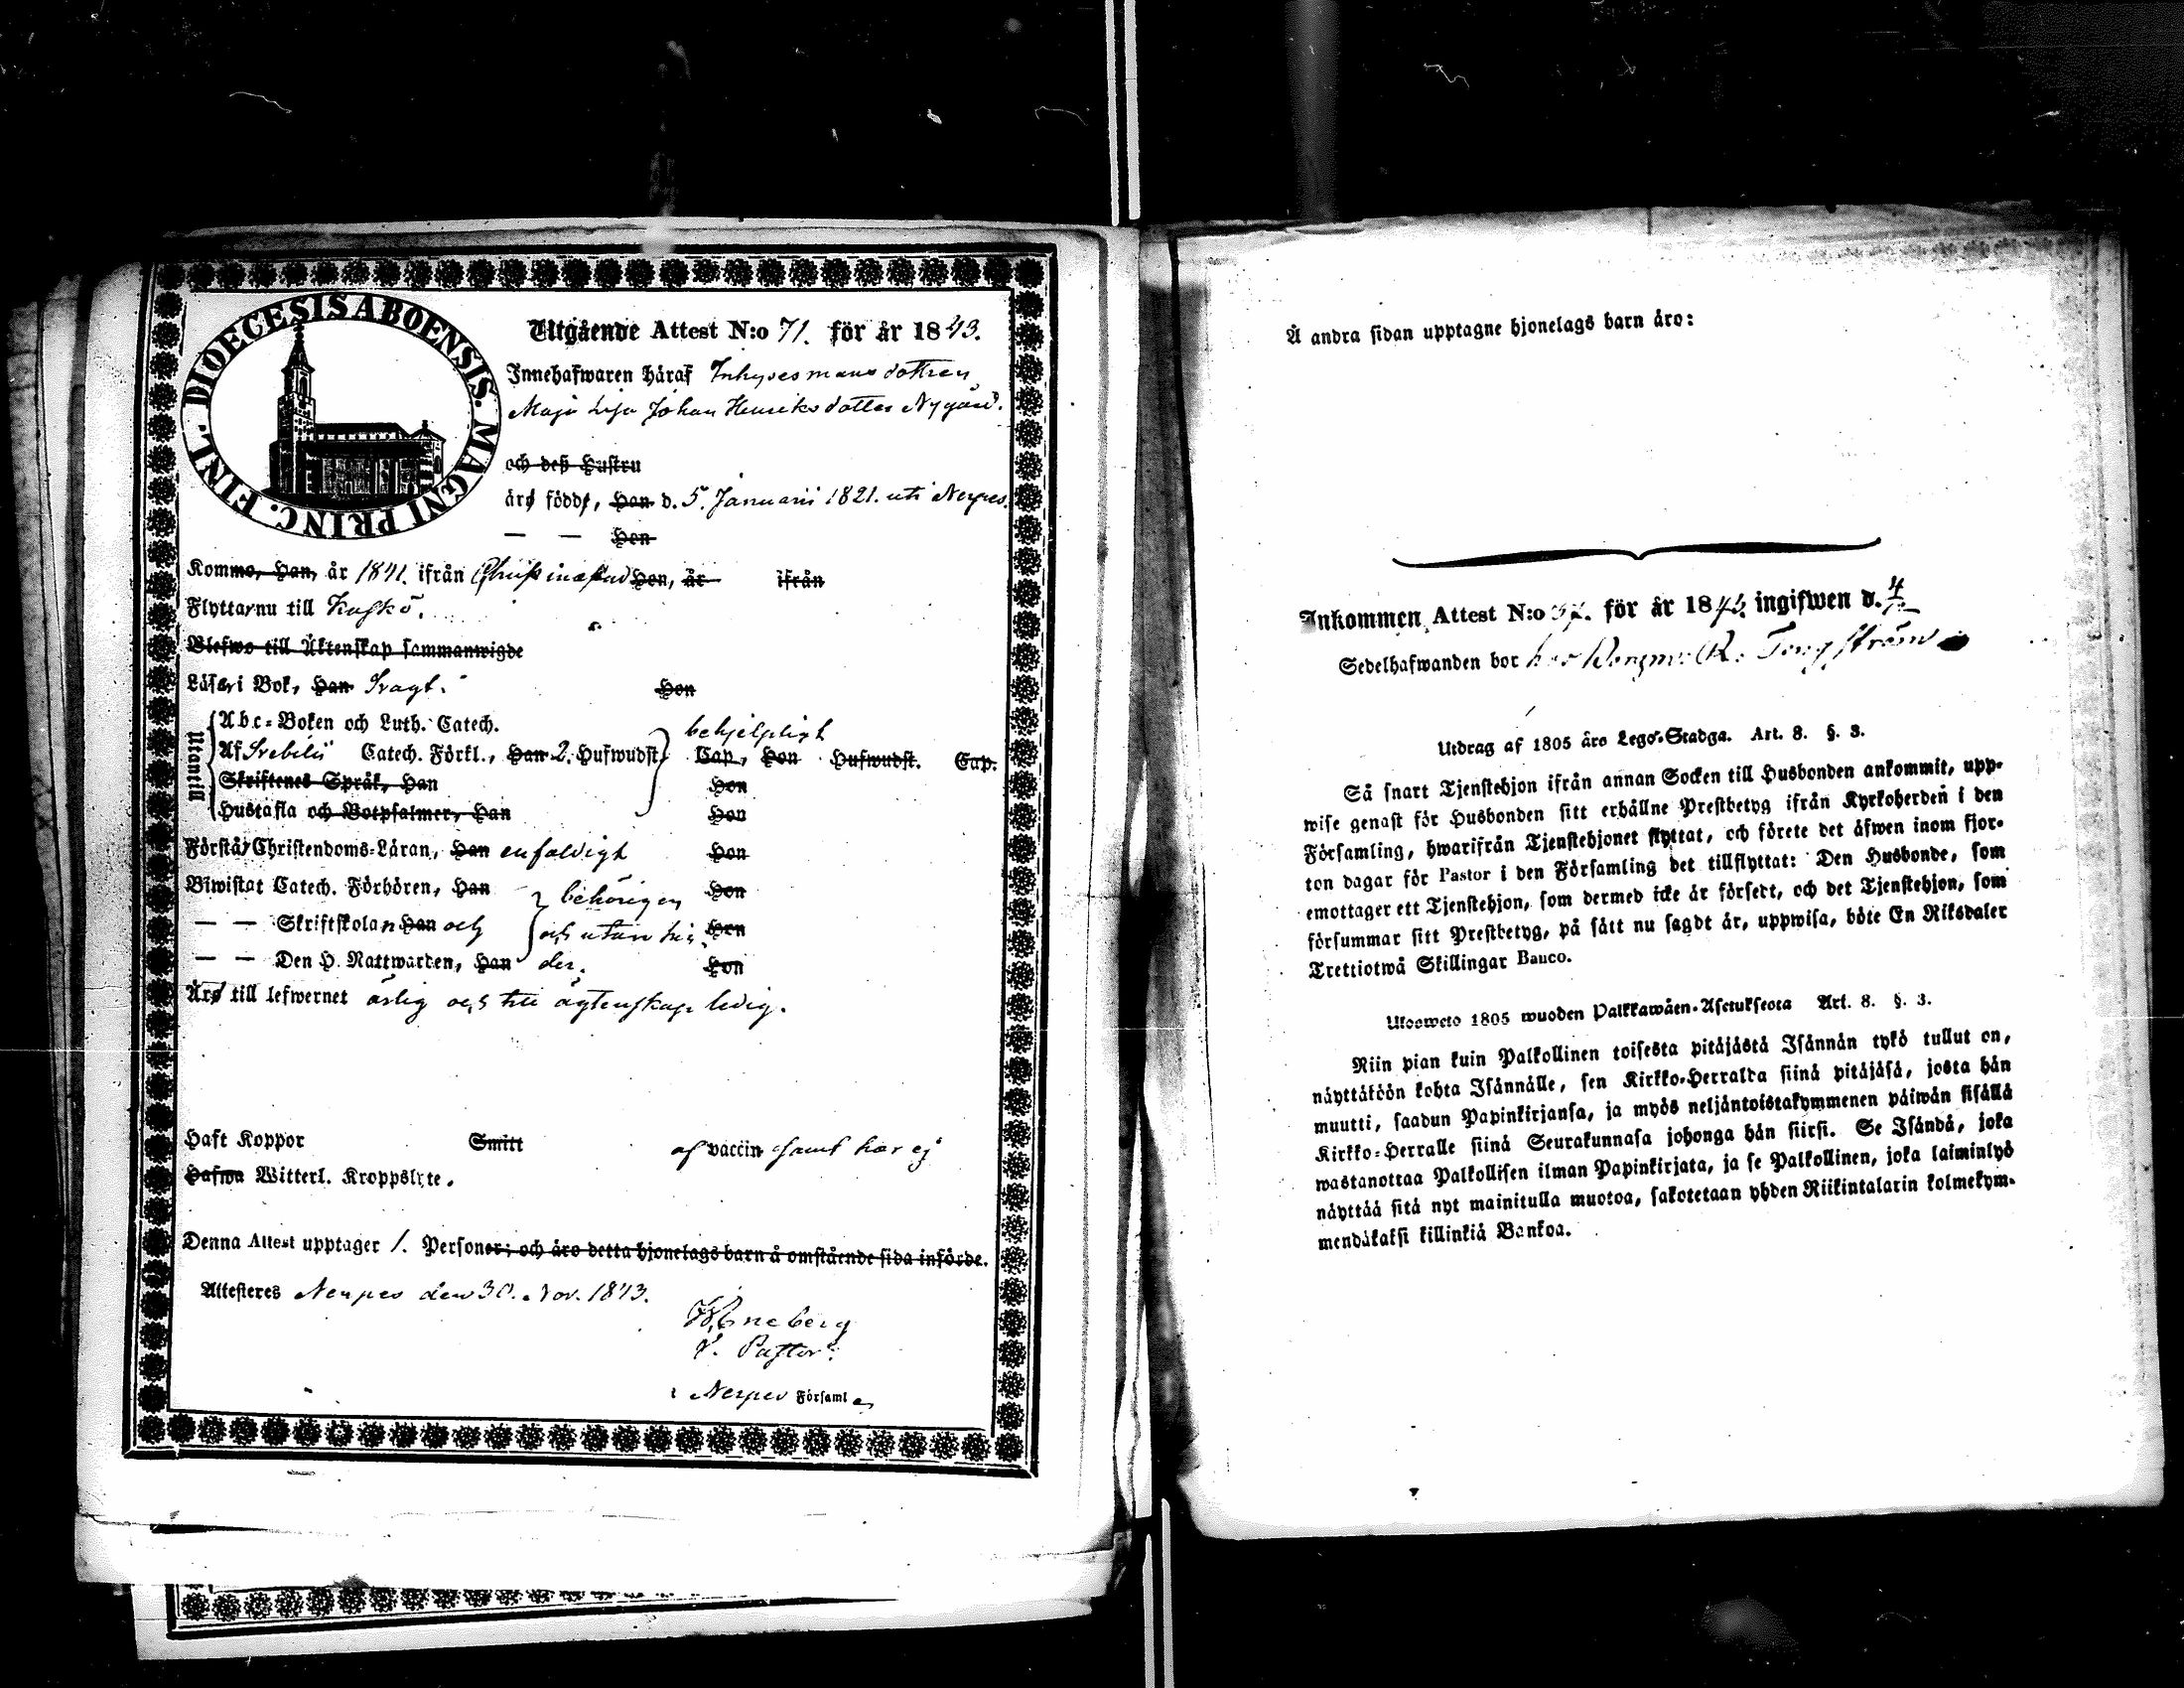 DIOECESIS ABOENSIS. MAGNI PRINC. FINL.
Utgående Attest N:o 71. för år 1843.
Innehafwaren häraf Inhysesmans dottren
Maja Lisa Johan Henriksdotter Nygård.
och deß Hustru
äro född, Han d. 5. Januarii 1821. uti Nerpes.
— — Hon
Kommo, Han, år 1841. ifrån Christinæstad Hon, år ifrån
Flyttar nu till Kaskö.
Blefwo till Äktenskap sammanwigde
Läser i Bok, Han Svagt. Hon
Utantill
Abc-Boken och Luth. Catech.
behjelpligt
Af Svebilii Catech. Förkl., Han 2. Hufwudst. Cap., Hon Hufwudst. Cap.
Skriftenes Språk, Han Hon
Hustafla och Botpsalmer, Han Hon
Förstår Christendoms-Läran, Han enfaldigt Hon
Biwistat Catech. Förhören, Han behörigen Hon
— — Skriftskolan Han och och utan hin- Hon
— — Den H. Nattwarden, Han der. Hon
Äro till lefwernet ärlig och till ägtenskap ledig.
Haft Koppor Smitt af vaccin samt har ej
Hafwa Witterl. Kroppslyte.
Denna Attest upptager 1. Personer; och äro detta hjonelags barn å omstående sida införde.
Attesteres Nerpes den 30. Nov. 1843.
V. Pastor.
i Nerpes Församl
Å andra sidan upptagne hjonelags barn äro:
Inkommen Attest N:o för år 184 ingifwen d. 4
Sedelhafwanden bor hos
Utdrag af 1805 års Lego-Stadga. Art. 8. §. 3.
Så snart Tjenstehjon ifrån annan Socken till Husbonden ankommit, upp-
wise genast för Husbonden sitt erhållne Prestbetyg ifrån Kyrkoherden i den
Församling, hwarifrån Tjenstehjonet flyttat, och förete det äfwen inom fjor-
ton dagar för Pastor i den Församling det tillflyttat: Den Husbonde, som
emottager ett Tjenstehjon, som dermed icke är försedt, och det Tjenstehjon, som
försummar sitt Prestbetyg, på sätt nu sagdt är, uppwisa, böte En Riksdaler
Trettiotwå Skillingar Banco.
Ulosweto 1805 wuoden Palkkawäen-Asetuksesta Art. 8. §. 3.
Niin pian kuin Palkollinen toisesta pitäjästä Isännän tykö tullut on,
näyttäköön kohta Isännälle, sen Kirkko-Herralda siinä pitäjäsä, josta hän
muutti, saadun Papinkirjansa, ja myös neljäntoistakymmenen päiwän sisällä
Kirkko-Herralle siinä Seurakunnasa johonga hän siirsi. Se Isändä, joka
wastanottaa Palkollisen ilman Papinkirjata, ja se Palkollinen, joka laiminlyö
näyttää sitä nyt mainitulla muotoa, sakotetaan yhden Riikintalarin kolmekym-
mendäkaksi killinkiä Bankoa.